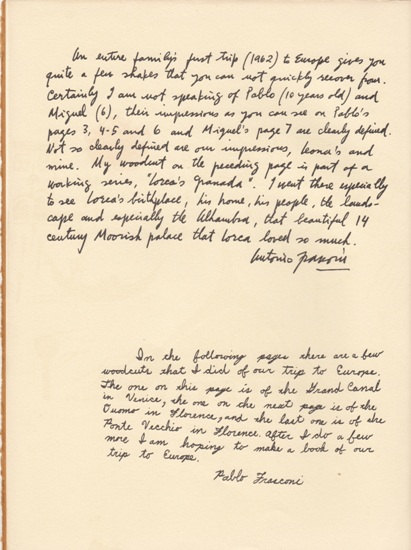 An entire family's first trip (1962) to Europe gives you
quite a few shakes that you can not quickly recover from.
Certainly I am not speaking of Pablo (10 years old) and
Miguel (6), their impressions as you can see on Pablo's
pages 3, 4-5 and 6 and Miguel's page 7 are clearly defined.
Not so clearly defined are our impressions, Leona's and
mine. My woodcut on the preceding page is part of a
working series, "Lorca's Granada". I went there especially
to see Lorca's birthplace, his home, his people, the lands-
cape and especially the Alhambra, that beautiful 14
century Moorish palace that Lorca loved so much.
Antonio Frasconi
In the following pages there are a few
woodcuts that I did of our trip to Europe.
The one on this page is of the Grand Canal
in Venice, the one on the next page is of the
Duomo in Florence, and the last one is of the
Ponte Vecchio in Florence. After I do a few
more I am hoping to make a book of our
trip to Europe.
Pablo Frasconi